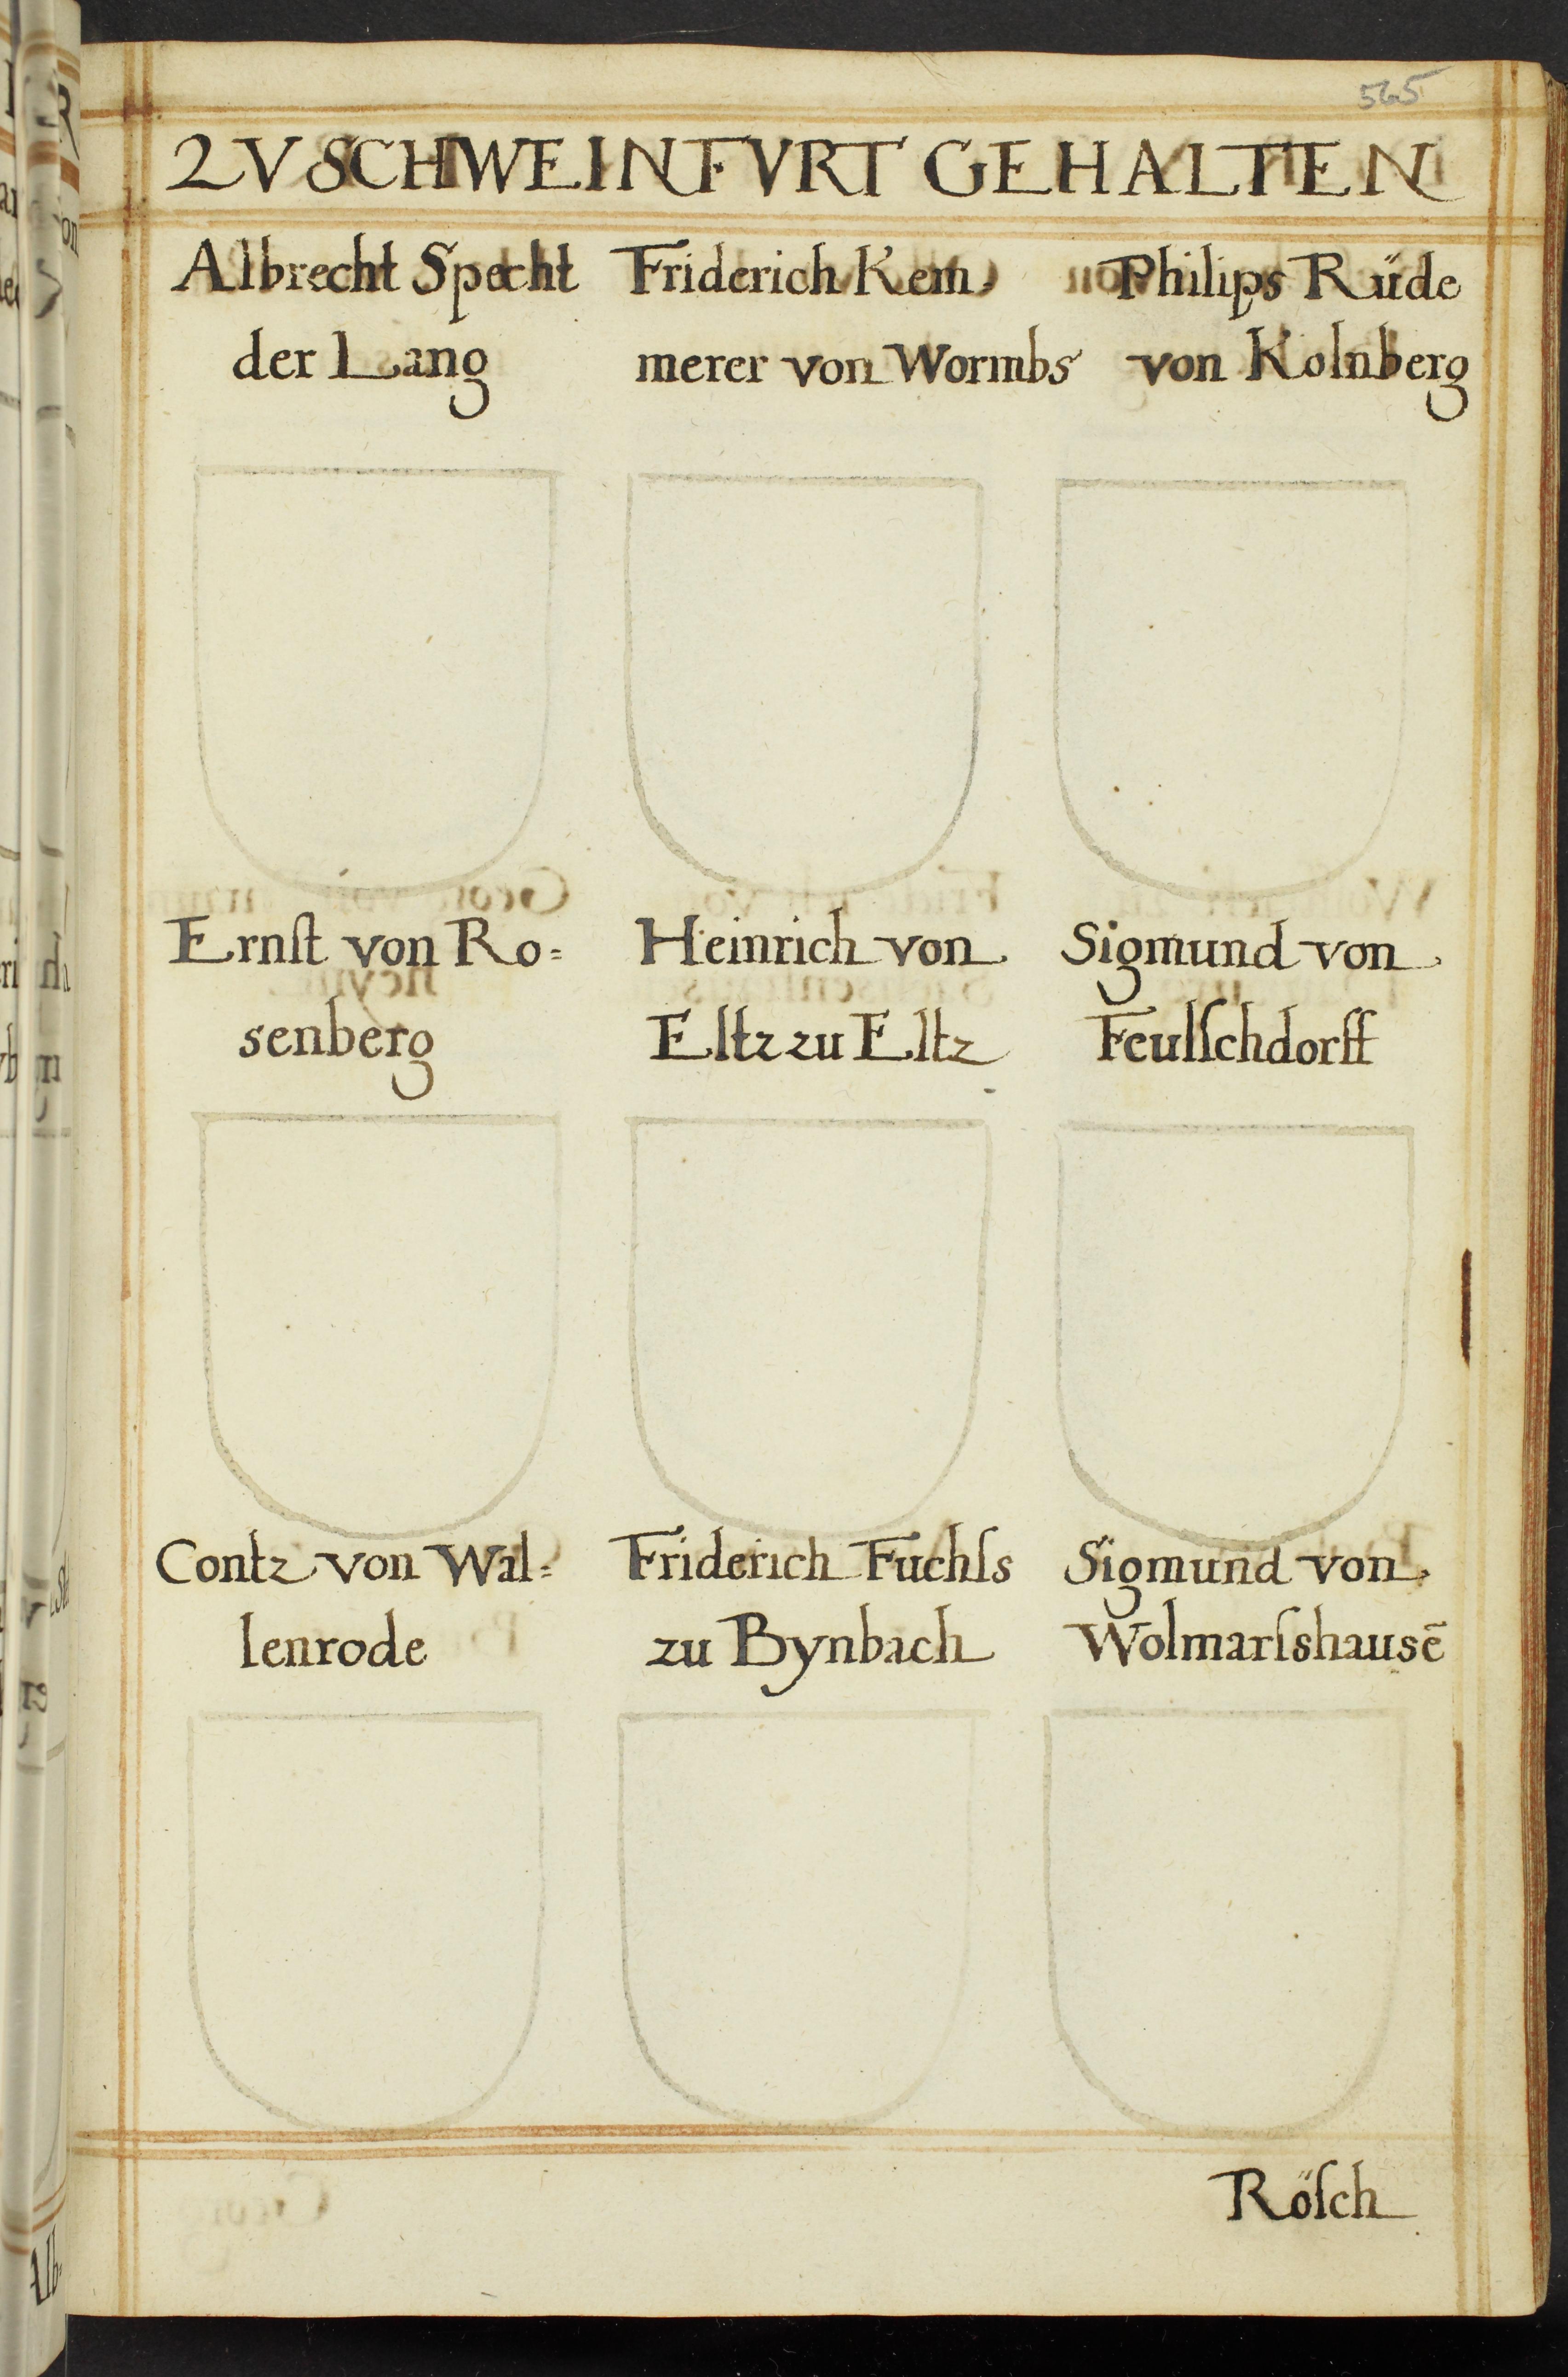 565
ZV SCHWEINFVRT GEHALTEN
Albrecht Specht
der Lang
Friderich Kem
merer von Wormbs
Philips Rüde
von Kolnberg
Ernſt von Ro=
senberg
Heinrich von
Eltz zu Eltz
Sigmund von
Feulſchdorff
Contz von Wal=
lenrode
Friderich Fuchſs
zu Bynbach
Sigmund von
Wolmarſshausē
Röſch